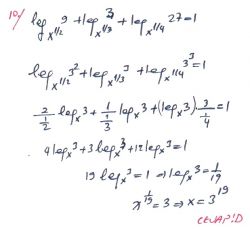 10/ log_{x^{1/2}} 9 + log_{x^{1/3}} 3 + log_{x^{1/4}} 27 = 1
log_{x^{1/2}} 3^2 + log_{x^{1/3}} 3 + log_{x^{1/4}} 3^3 = 1
\frac{2}{\frac{1}{2}} log_x 3 + \frac{1}{\frac{1}{3}} log_x 3 + (log_x 3) · \frac{3}{\frac{1}{4}} = 1
4 log_x 3 + 3 log_x 3 + 12 log_x 3 = 1
19 log_x 3 = 1 ⇒ log_x 3 = \frac{1}{19}
x^{\frac{1}{19}} = 3 ⇒ x = 3^{19}
CEVAP: D